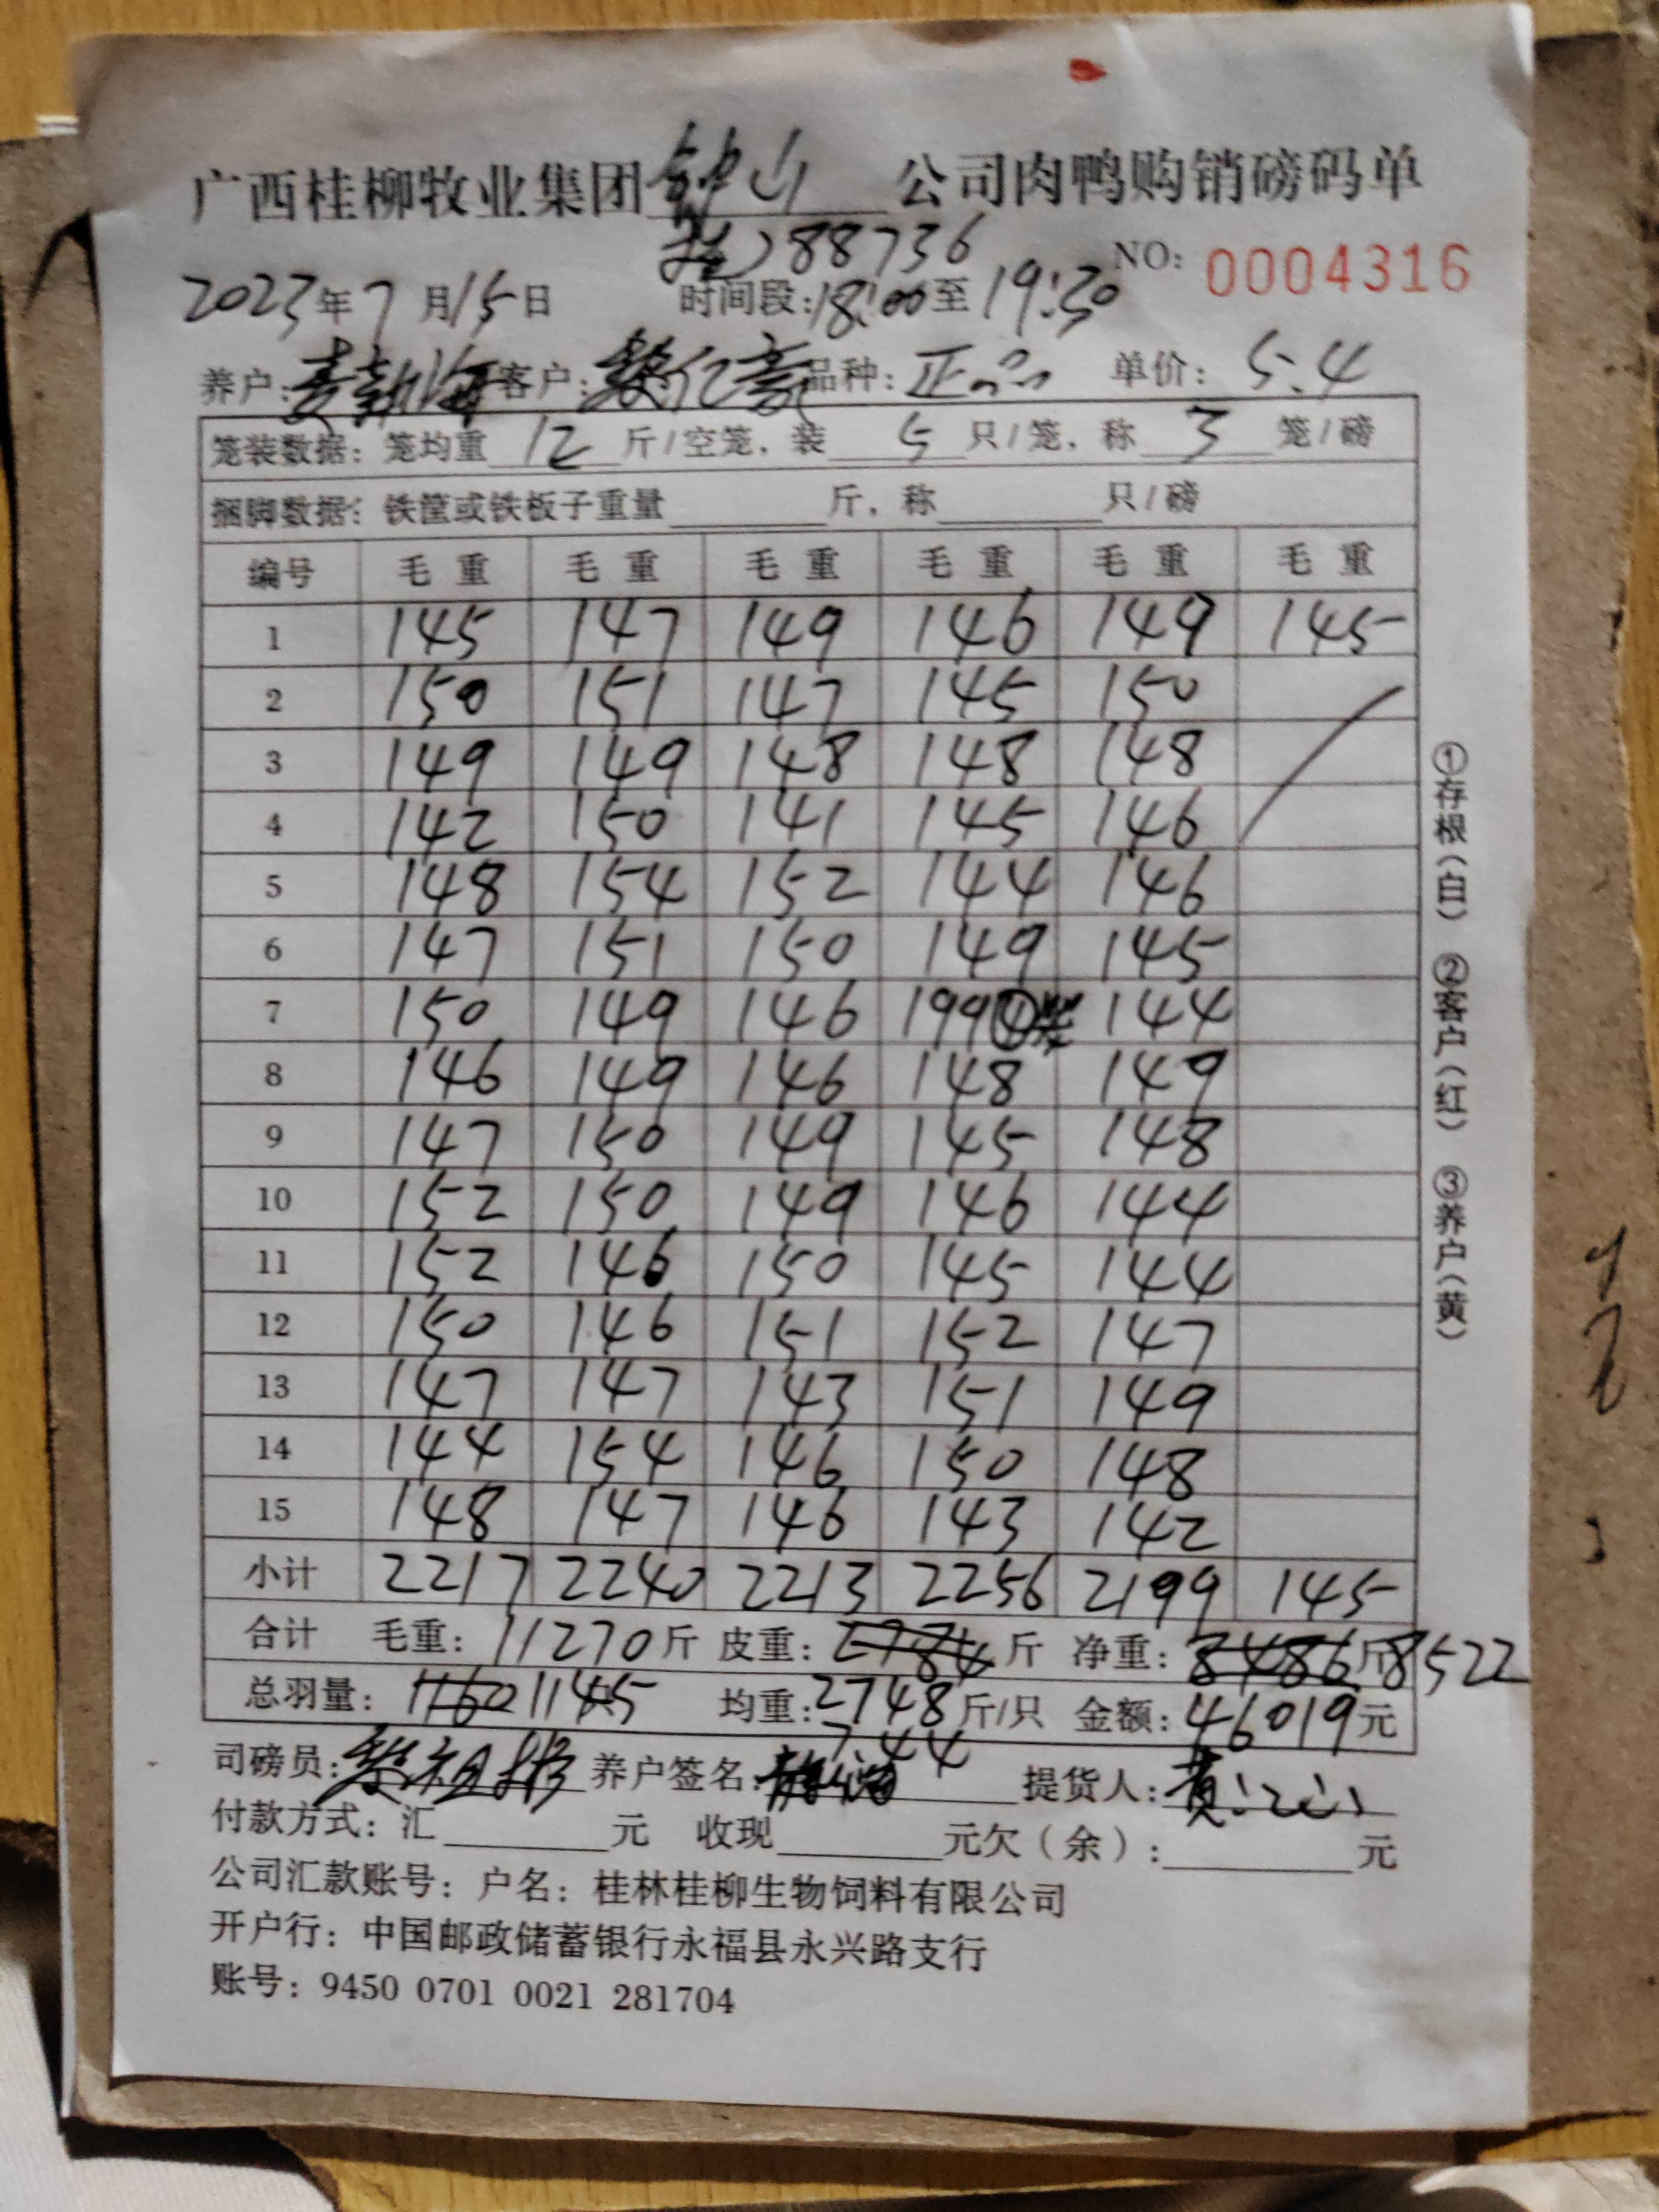 广西桂柳牧业集团 钟山 公司肉鸭购销磅码单
88736
NO: 0004316
2023年7月15日 时间段:18:00至19:30
养户: 客户: 品种: 正品 单价: 5.4
笼装数据: 笼均重 12 斤/空笼, 装 5 只/笼, 称 3 笼/磅
捆脚数据: 铁筐或铁板子重量 斤, 称 只/磅
编号 毛重 毛重 毛重 毛重 毛重 毛重
1 145 147 149 146 149 145
2 150 151 147 145 150
3 149 149 148 148 148
4 142 150 141 145 146
5 148 154 152 144 146
6 147 151 150 149 145
7 150 149 146 199④ 144
8 146 149 146 148 149
9 147 150 149 145 148
10 152 150 149 146 144
11 152 146 150 145 144
12 150 146 151 152 147
13 147 147 143 151 149
14 144 154 146 150 148
15 148 147 146 143 142
小计 2217 2240 2213 2256 2199 145
合计 毛重: 11270斤 皮重: 2784斤 净重: 8486斤 8522
总羽量: 1160 1145 均重: 2748斤/只 金额: 46019元
7.44
司磅员: 养户签名: 提货人: 黄江山
付款方式: 汇 元 收现 元欠(余): 元
公司汇款账号: 户名: 桂林桂柳生物饲料有限公司
开户行: 中国邮政储蓄银行永福县永兴路支行
账号: 9450 0701 0021 281704
①存根(白) ②客户(红) ③养户(黄)